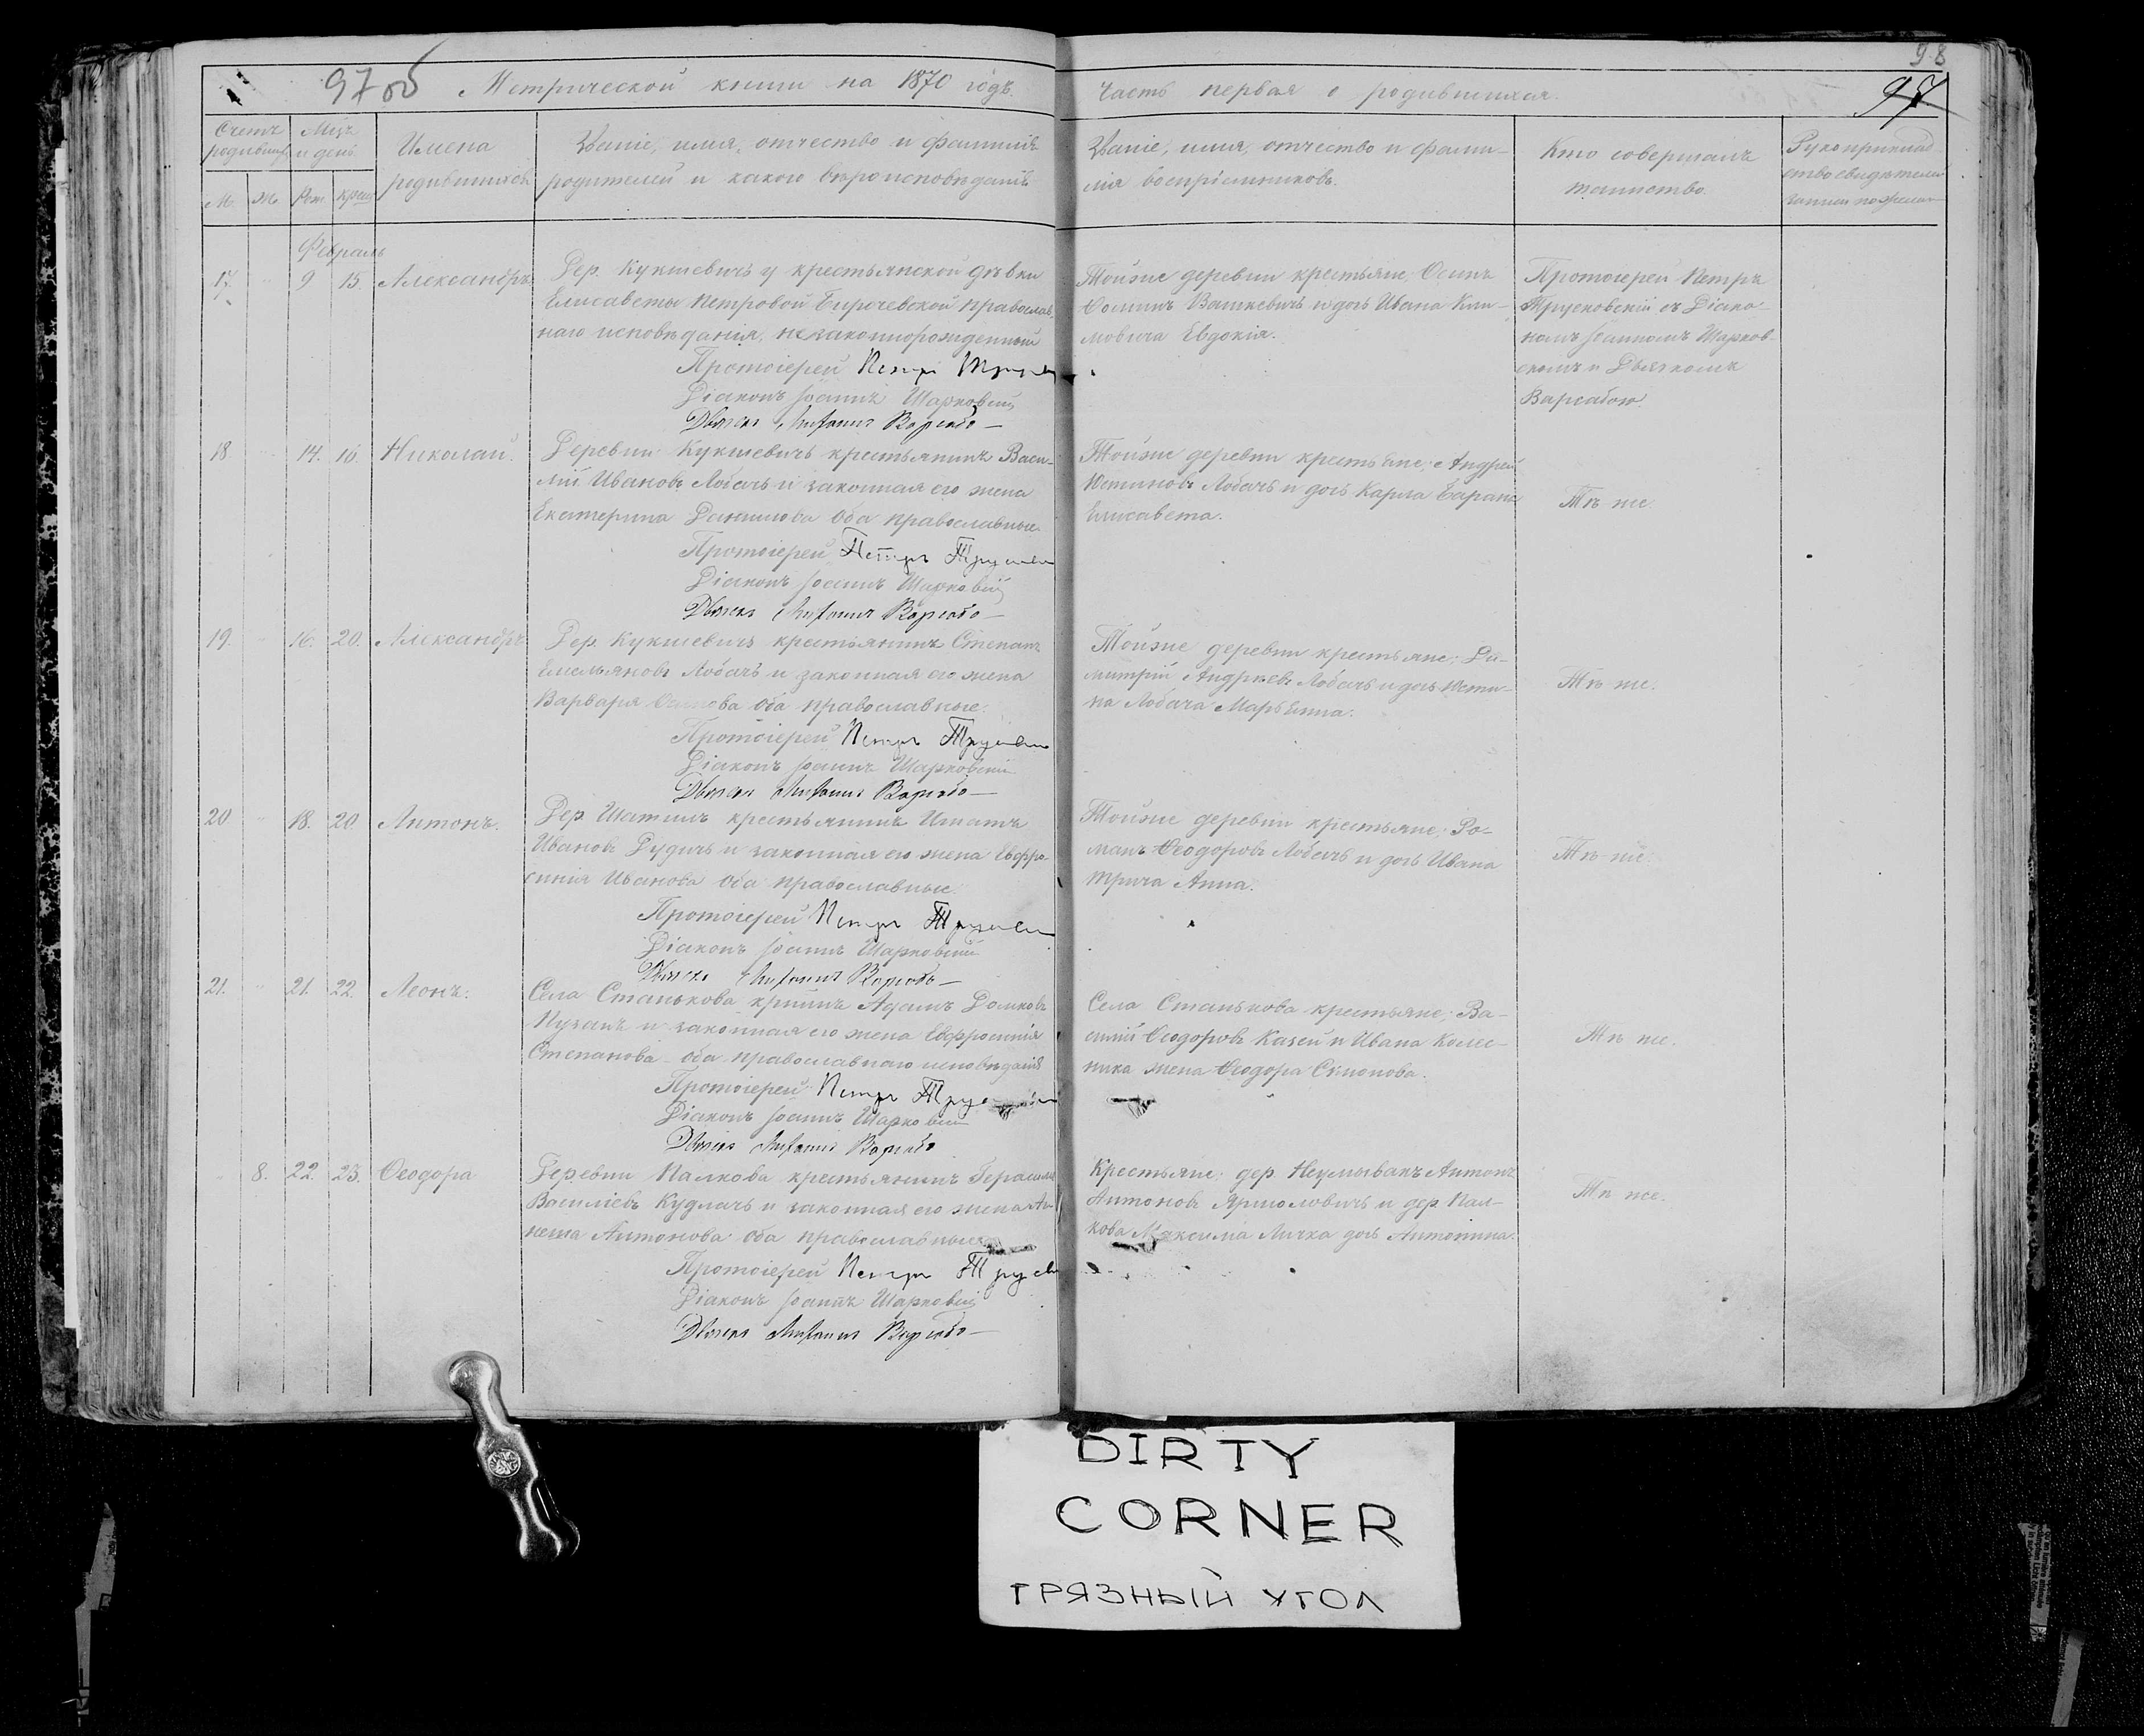 97об Метрической книги на 1870 годъ.
Часть первая о родившихся.
98
97
Счетъ родившихся
Мѣс. и день
Имена родившихся
Званіе, имя, отчество и фамилія
родителей и какого вѣроисповѣданія
Званіе, имя, отчество и фами-
лія воспріемниковъ.
Кто совершалъ
таинство.
Рукоприклад-
ство свидѣтелей
записи по желан
М. Ж. Рож. Крещ
Февраль
17. 9 15. Александръ
Дер. Кукшевичъ у крестьянской дѣвки
Елисаветы Петровой православ-
наго исповѣданія, незаконнорожденный
Протоіерей Петръ
Діаконъ Іоаннъ Шарковскій
Дьячекъ Варсаба
Тойже деревни крестьяне, Осипъ
Фоминъ Вашкевичъ и дочь Ивана Кли-
мовича Евдокія.
Протоіерей Петръ
Трусковскій съ Діако-
номъ Іоанномъ Шарков-
скимъ и Дьячкомъ
Варсабою.
18 14. 16. Николай.
Деревни Кукшевичъ крестьянинъ Васи-
лій Ивановъ Лобачъ и законная его жена
Екатерина Данилова оба православные.
Протоіерей Петръ
Діаконъ Іоаннъ Шарковскій
Дьячекъ Варсаба
Тойже деревни крестьяне; Андрей
Юстиновъ Лобачъ и дочь Карпа
Елисавета.
Тѣ же.
19. 16. 20. Александръ
Дер. Кукшевичъ крестьянинъ Степанъ
Емельяновъ Лобачъ и законная его жена
Варвара оба православные.
Протоіерей Петръ
Діаконъ Іоаннъ Шарковскій
Дьячекъ Варсаба
Тойже деревни крестьяне; Ди-
митрій Андреевъ Лобачъ и дочь Юсти-
на Лобача Марьянна.
Тѣ же.
20 18. 20 Антонъ.
Дер. крестьянинъ Игнатъ
Ивановъ Рудичъ и законная его жена Евфро-
синія Иванова оба православные.
Протоіерей Петръ
Діаконъ Іоаннъ Шарковскій
Дьячекъ Варсаба
Тойже деревни крестьяне; Ро-
манъ Ѳеодоровъ Лобачъ и дочь Ивана
Анна.
Тѣ же.
21. 21. 22. Леонъ.
Села Станькова Адамъ
и законная его жена Евфросинія
Степанова оба православнаго исповѣданія
Протоіерей Петръ
Діаконъ Іоаннъ Шарковскій
Дьячекъ Варсаба
Села Станькова крестьяне; Ва-
силій Ѳеодоровъ Казей и Ивана Колес-
ника жена Ѳеодора Симонова.
Тѣ же.
8. 22. 23. Ѳеодора
Деревни Палкова крестьянинъ Герасимъ
Василіевъ Кудлачъ и законная его жена
Антонова оба православные
Протоіерей Петръ
Діаконъ Іоаннъ Шарковскій
Дьячекъ Варсаба
Крестьяне: дер. Антонъ
Антоновъ Ярмоловичъ и дер. Пал-
кова Максима Личка дочь Антонина.
Тѣ же.
DIRTY
CORNER
ГРЯЗНЫЙ УГОЛ